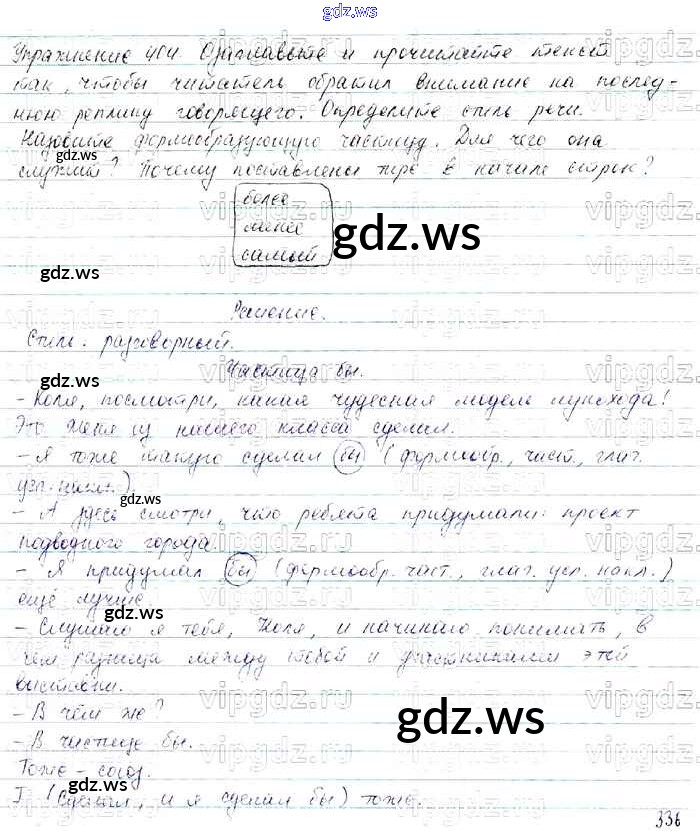 gdz.ws
Упражнение 404. Озаглавьте и прочитайте текст
так, чтобы читатель обратил внимание на послед-
нюю реплику говорящего. Определите стиль речи.
Назовите формообразующую частицу. Для чего она
служит? Почему поставлены тире в начале строк?
gdz.ws
более
менее
самый
gdz.ws
gdz.ws
Решение.
Стиль: разговорный.
Частица бы.
gdz.ws
- Коля, посмотри, какая чудесная модель лунохода!
Это Женя из нашего класса сделал.
- Я тоже такую сделал бы (формообр., част., глаг.
усл. накл.).
gdz.ws
- А здесь смотри, что ребята придумали: проект
подводного города.
- Я придумал бы (формообр. част., глаг. усл. накл.)
ещё лучше.
gdz.ws
- Слушаю я тебя, Коля, и начинаю понимать, в
чём разница между тобой и участниками этой
выставки.
- В чём же?
gdz.ws
- В частице бы.
Тоже - союз.
Я (Сделал, и я сделал бы) тоже.
gdz.ws
336